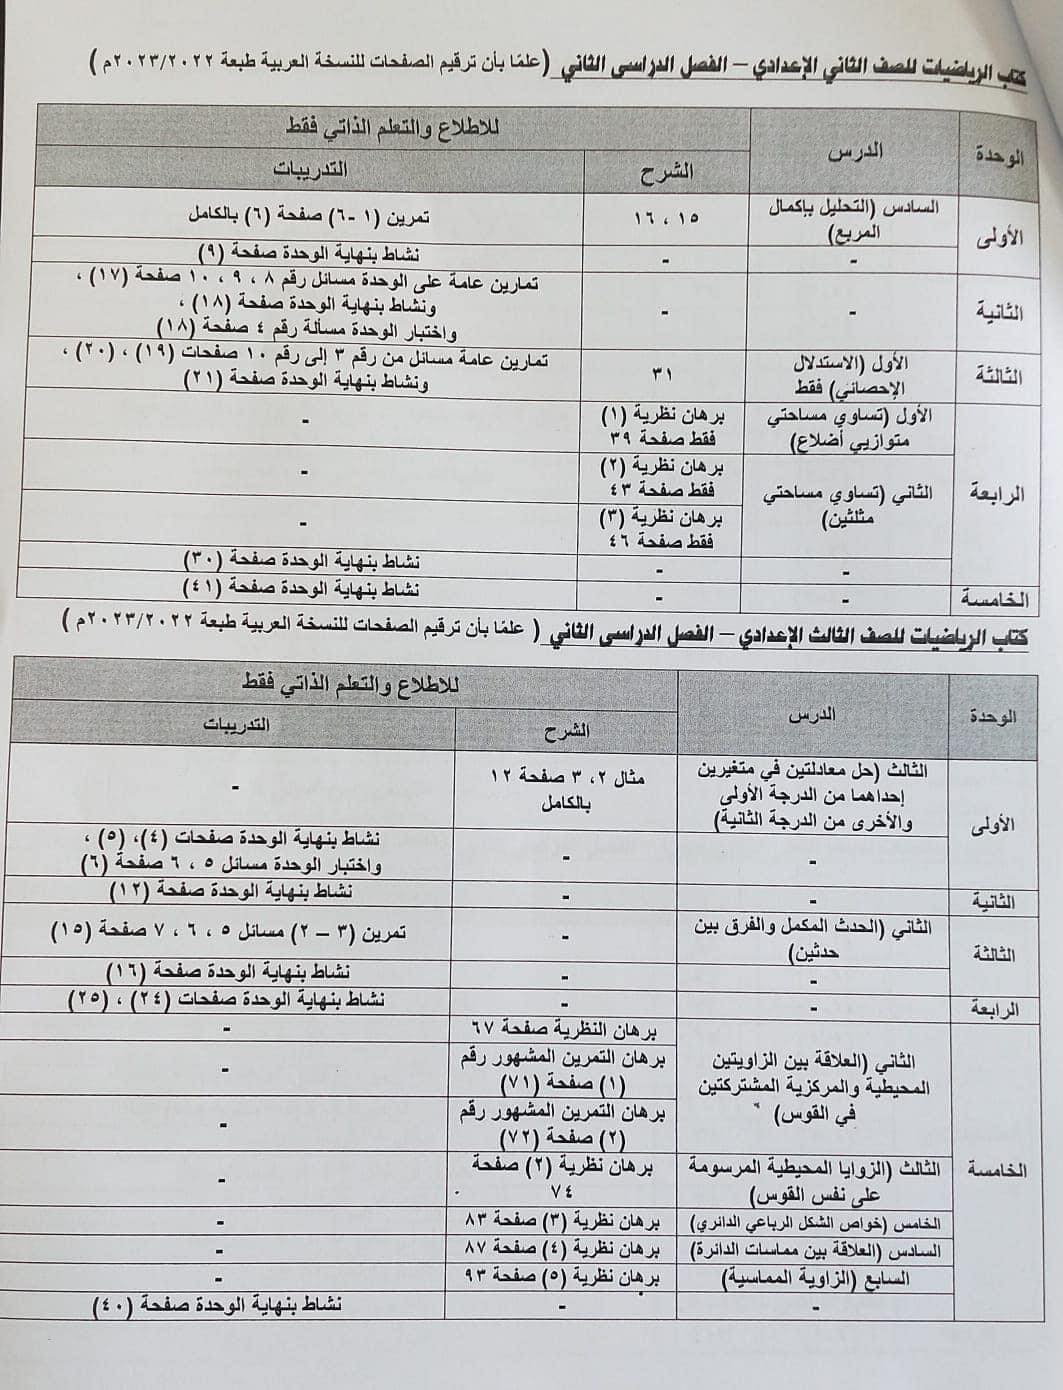 كتاب الرياضيات للصف الثاني الإعدادي – الفصل الدراسى الثاني (علمًا بأن ترقيم الصفحات للنسخة العربية طبعة ٢٠٢٣/٢٠٢٢م)
الوحدة
الدرس
للاطلاع والتعلم الذاتي فقط
الشرح
التدريبات
الأولى
السادس (التحليل بإكمال
المربع)
١٥ ، ١٦
تمرين (١ -٦) صفحة (٦) بالكامل
-
-
نشاط بنهاية الوحدة صفحة (٩)
الثانية
-
-
تمارين عامة على الوحدة مسائل رقم ٨ ، ٩ ، ١٠ صفحة (١٧) ،
ونشاط بنهاية الوحدة صفحة (١٨) ،
واختبار الوحدة مسألة رقم ٤ صفحة (١٨)
الثالثة
الأول (الاستدلال
الإحصائي) فقط
٣١
تمارين عامة مسائل من رقم ٣ إلى رقم ١٠ صفحات (١٩) ، (٢٠) ،
ونشاط بنهاية الوحدة صفحة (٢١)
الرابعة
الأول (تساوي مساحتي
متوازيي أضلاع)
برهان نظرية (١)
فقط صفحة ٣٩
-
الثاني (تساوي مساحتي
مثلثين)
برهان نظرية (٢)
فقط صفحة ٤٣
-
برهان نظرية (٣)
فقط صفحة ٤٦
-
-
-
نشاط بنهاية الوحدة صفحة (٣٠)
الخامسة
-
-
نشاط بنهاية الوحدة صفحة (٤١)
كتاب الرياضيات للصف الثالث الإعدادي – الفصل الدراسى الثاني ( علمًا بأن ترقيم الصفحات للنسخة العربية طبعة ٢٠٢٣/٢٠٢٢م)
الوحدة
الدرس
للاطلاع والتعلم الذاتي فقط
الشرح
التدريبات
الأولى
الثالث (حل معادلتين في متغيرين
إحداهما من الدرجة الأولى
والأخرى من الدرجة الثانية)
مثال ٢، ٣ صفحة ١٢
بالكامل
-
-
-
نشاط بنهاية الوحدة صفحات (٤)، (٥) ،
واختبار الوحدة مسائل ٥ ، ٦ صفحة (٦)
الثانية
-
-
نشاط بنهاية الوحدة صفحة (١٢)
الثالثة
الثاني (الحدث المكمل والفرق بين
حدثين)
-
تمرين (٣ – ٢) مسائل ٥ ، ٦ ، ٧ صفحة (١٥)
-
-
نشاط بنهاية الوحدة صفحة (١٦)
الرابعة
-
-
نشاط بنهاية الوحدة صفحات (٢٤) ، (٢٥)
الخامسة
الثاني (العلاقة بين الزاويتين
المحيطية والمركزية المشتركتين
في القوس)
برهان النظرية صفحة ٦٧
-
برهان التمرين المشهور رقم
(١) صفحة (٧١)
-
برهان التمرين المشهور رقم
(٢) صفحة (٧٢)
-
الثالث (الزوايا المحيطية المرسومة
على نفس القوس)
برهان نظرية (٢) صفحة
٧٤
-
الخامس (خواص الشكل الرباعي الدائري)
برهان نظرية (٣) صفحة ٨٣
-
السادس (العلاقة بين مماسات الدائرة)
برهان نظرية (٤) صفحة ٨٧
-
السابع (الزاوية المماسية)
برهان نظرية (٥) صفحة ٩٣
-
-
-
نشاط بنهاية الوحدة صفحة (٤٠)